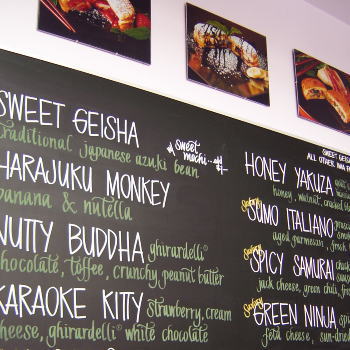 SWEET GEISHA
traditional japanese azuki bean
sweet mochi
HARAJUKU MONKEY
banana & nutella
NUTTY BUDDHA ghirardelli
chocolate, toffee, crunchy peanut butter
KARAOKE KITTY strawberry, cream
cheese, ghirardelli white chocolate
SWEET
ALL OTHER
HONEY YAKUZA
honey, walnut,
SUMO ITALIANO
aged parmesan, fresh
SPICY SAMURAI
jack cheese, green chili,
GREEN NINJA
feta cheese,